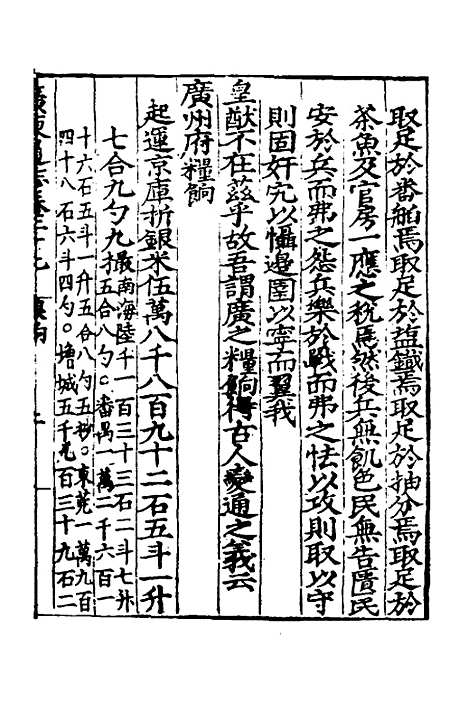 取足於番舶焉取足於塩鐵焉取足於抽分焉取足於
茶魚及官房一應之稅焉然後兵無飢色民無告匱民
安於兵而弗之怨兵樂於戰而弗之怯以攻則取以守
則固奸宄以懾邊圉以寧而翼我
皇猷不在茲乎故吾謂廣之糧餉得古人變通之義云
廣州府糧餉
起運京庫折銀米伍萬八千八百九十二石五斗一升
七合九勺九撮南海陸千一百三十三石二斗七升
五合八勺○番禺一萬二千六百一
十六石五斗一升五合八勺五秒○東莞一萬九百
四十八石六斗四勺○增城五千九百三十九石二
廣東通志卷二十九